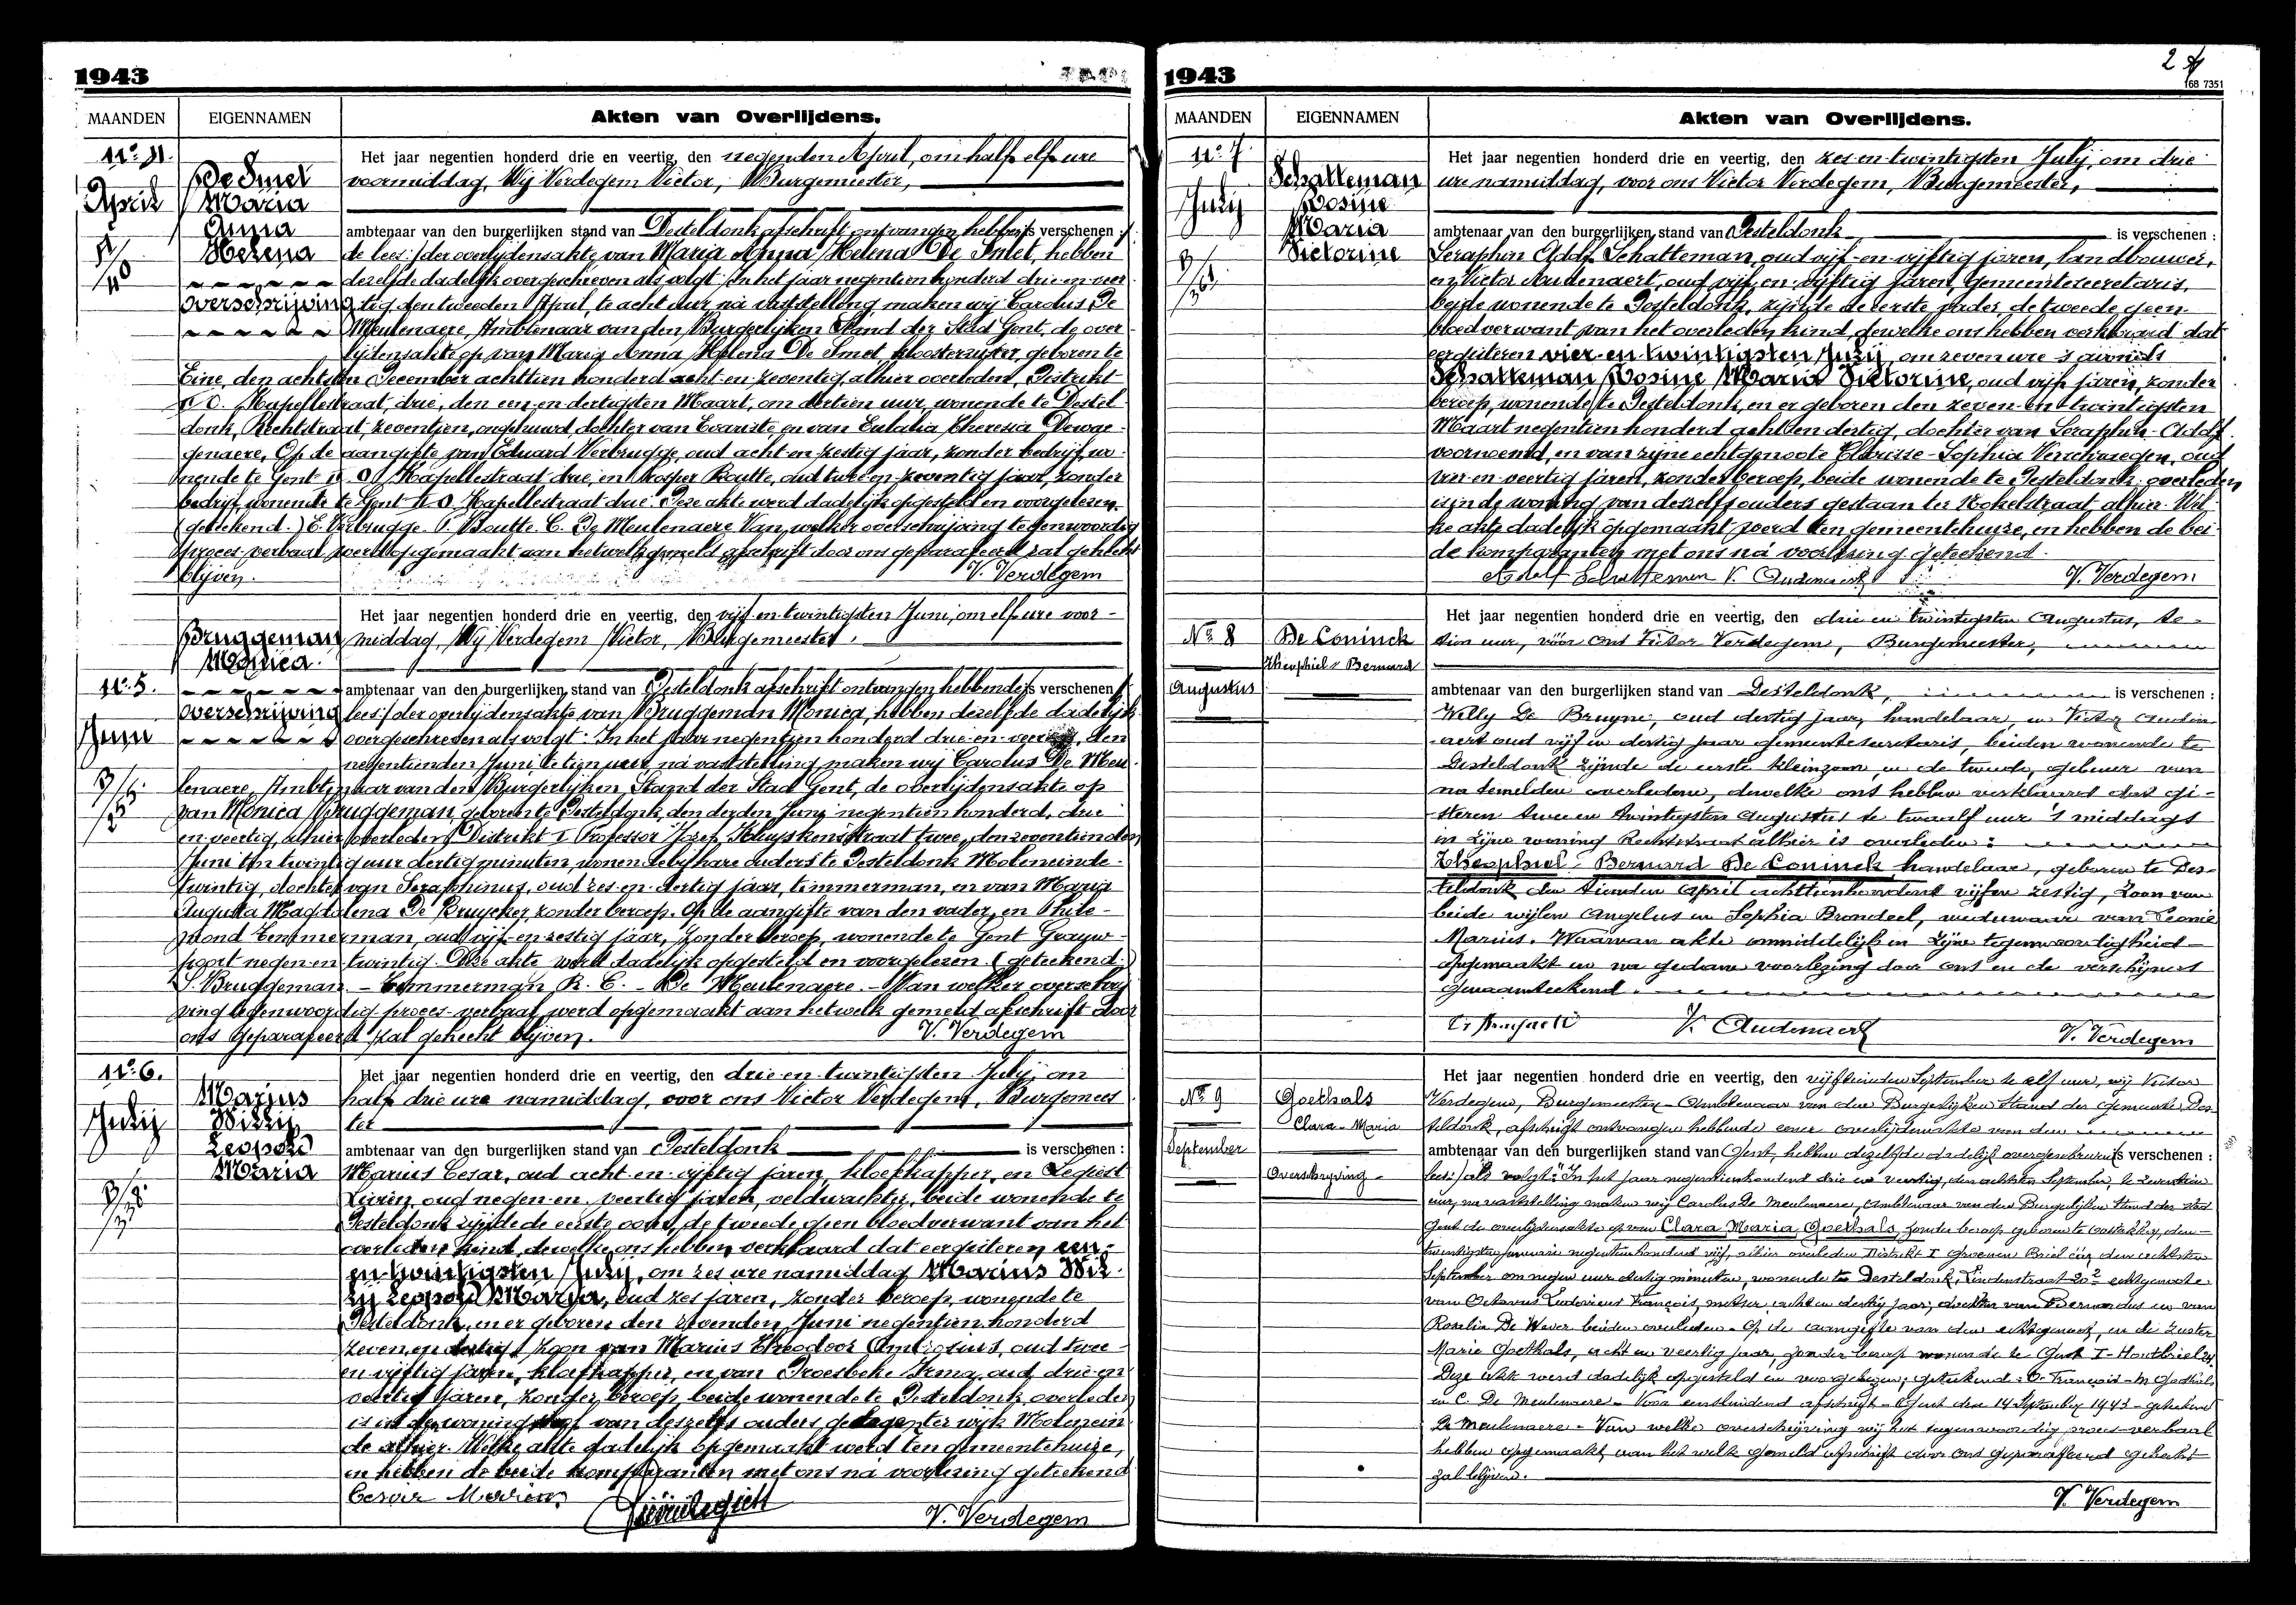 1943
MAANDEN EIGENNAMEN Akten van Overlijdens.
N° 4.
April
De Smet
Maria
Anna
Helena
Overschrijving
Het jaar negentien honderd drie en veertig, den negenden April, om half elf ure
voormiddag, Wij Verdegem Victor, Burgemeester,
ambtenaar van den burgerlijken stand van Desteldonk afschrift ontvangen hebben is verschenen :
de lees: der overlijdensakte van Maria Anna Helena De Smet, hebben
dezelfde dadelijk overgeschreven als volgt: In het jaar negentien honderd drie-en-veer
tig den tweeden April, te acht uur na vaststelling, maken wij Carolus De
Meulenaere, Ambtenaar van den Burgerlijken Stand der Stad Gent, de over
lijdensakte op van Maria Anna Helena De Smet, kloosterzuster, geboren te
Eine, den achtsten December achttien honderd acht-en-zeventig, alhier overleden, Distrikt
Kapellestraat, drie, den een-en-dertigsten Maart, om dertien uur, wonende te Destel
donk, Rechtstraat, zeventien, ongehuwd, dochter van Evariste, en van Eulalia Theresia Dewae
genaere, Op de aangifte van Eduard Verbrugge, oud acht-en-zestig jaar, zonder bedrijf, wo
nende te Gent Kapellestraat drie, en Prosper Boutte, oud twee-en-zeventig jaar, zonder
bedrijf, wonende te Gent Kapellestraat drie. Deze akte werd dadelijk opgesteld en voorgelezen.
(geteekend.) E. Verbrugge. P. Boutte. C. De Meulenaere. Van welker overschrijving tegenwoordig
proces-verbaal werd opgemaakt aan hetwelk gemeld afschrift door ons geparafeerd zal gehecht
blijven. V. Verdegem
N° 5.
Juni
Bruggeman
Monica.
Overschrijving
Het jaar negentien honderd drie en veertig, den vijf-en-twintigsten Juni, om elf ure voor-
middag, Wij Verdegem Victor, Burgemeester,
ambtenaar van den burgerlijken stand van Desteldonk afschrift ontvangen hebbende is verschenen :
lees: der overlijdensakte van Bruggeman Monica, hebben dezelfde dadelijk
overgeschreven als volgt: In het jaar negentien honderd drie-en-veertig, den
negentienden Juni te tien uur, na vaststelling maken wij Carolus De Meu
lenaere, Ambtenaar van den Burgerlijken Stand der Stad Gent, de overlijdensakte op
van Monica Bruggeman, geboren te Desteldonk, den derden Juni negentien honderd, drie
en-veertig, alhier overleden Distrikt I Professor Jozef Kluyskensstraat twee, den zeventienden
Juni ten twintig uur dertig minuten, wonende bij hare ouders te Desteldonk Moleneinde
twintig, dochter van Seraphinus, oud zes-en-dertig jaar, timmerman, en van Maria
Augusta Magdalena De Bruycker, zonder beroep. Op de aangifte van den vader, en Phile-
mond Temmerman, oud vijf-en-zestig jaar, zonder beroep, wonende te Gent Grauw-
poort negen-en-twintig. Deze akte werd dadelijk opgesteld en voorgelezen. (geteekend.)
S. Bruggeman. - Temmerman R. E. - De Meulenaere. - Van welker overschrij
ving tegenwoordig proces-verbaal werd opgemaakt aan hetwelk gemeld afschrift door
ons geparafeerd zal gehecht blijven. V. Verdegem
N° 6.
Julij
Marius
Willij
Leopold
Maria
Het jaar negentien honderd drie en veertig, den drie-en-twintigsten Julij, om
half drie ure namiddag, voor ons Victor Verdegem, Burgemees
ter
ambtenaar van den burgerlijken stand van Desteldonk is verschenen :
Marius Cesar, oud acht-en-vijftig jaren, kloefkapper, en Legiest
Livien, oud negen-en-veertig jaren, veldwachter, beide wonende te
Desteldonk zijnde de eerste oom, de tweede geen bloedverwant van het
overleden kind, dewelke ons hebben verklaard dat eergisteren een-
en-twintigsten Julij, om zes ure namiddag Marius Wil
lij Leopold Maria, oud zes jaren, zonder beroep, wonende te
Desteldonk, en er geboren den Juni negentien honderd
zeven en dertig, zoon van Marius Theodoor Ambrosius, oud twee
en-vijftig jaren, kloefkapper, en van Droesbeke Irma, oud drie-en
veertig jaren, zonder beroep, beide wonende te Desteldonk, overleden
is in de woning van deszelfs ouders gelegen ter wijk Molenein
de alhier. Welke akte dadelijk opgemaakt werd ten gemeentehuize,
en hebben de beide komparanten met ons na voorlezing geteekend
Cesar Marius V. Verdegem
1943
168 7351
MAANDEN EIGENNAMEN Akten van Overlijdens.
N° 7.
Julij
Schatteman
Rosine
Maria
Victorine
Het jaar negentien honderd drie en veertig, den zes-en-twintigsten Julij, om drie
ure namiddag, voor ons Victor Verdegem, Burgemeester,
ambtenaar van den burgerlijken stand van Desteldonk is verschenen :
Seraphin Adolf Schatteman, oud vijf-en-vijftig jaren, landbouwer,
en Victor Audenaert, oud vijf-en-vijftig jaren, Gemeentesecretaris,
beide wonende te Desteldonk, zijnde de eerste vader de tweede geen
bloedverwant van het overleden kind, dewelke ons hebben verklaard dat
eergisteren vier-en-twintigsten Julij, om zeven ure 's avonds
Schatteman Rosine Maria Victorine, oud vijf jaren, zonder
beroep, wonende te Desteldonk, en er geboren den zeven-en-twintigsten
Maart negentien honderd acht en dertig, dochter van Seraphin-Adolf
voornoemd, en van zijne echtgenoote Clarisse-Sophia oud
vier-en-veertig jaren, zonder beroep, beide wonende te Desteldonk: overleden
is in de woning van deszelfs ouders gestaan ter Hokelstraat, alhier. Wel-
ke akte dadelijk opgemaakt werd ten gemeentehuize, en hebben de bei-
de komparanten met ons na voorlezing geteekend.
Adolf Schatteman V. Audenaert V. Verdegem
N° 8
Augustus
De Coninck
Theophiel Bernard
Het jaar negentien honderd drie en veertig, den drie en twintigsten Augustus, te
tien uur, vóór ons Victor Verdegem, Burgemeester,
ambtenaar van den burgerlijken stand van Desteldonk, is verschenen :
Willy De Bruyne, oud dertig jaar, handelaar, en Victor Auden
aert oud vijf en dertig jaar gemeentesecretaris, beiden wonende te
Desteldonk zijnde de eerste kleinzoon, en de tweede, gebuur van
na temelden overledene, dewelke ons hebben verklaard dat gi-
steren twee en twintigsten Augustus te twaalf uur 's middags
in zijne woning Rechtstraat alhier is overleden:
Theophiel Bernard De Coninck handelaar, geboren te Des-
teldonk den tienden April achttienhonderd vijf en zestig, zoon van
beide wijlen Angelus en Sophia Brondeel, weduwnaar van Leonie
Marius. Waarvan akte onmiddelijk in zijne tegenwoordigheid
opgemaakt en na gedane voorlezing door ons en de verschijners
genaamteekend.
V. Audenaert V. Verdegem
N° 9
September
Goethals
Clara-Maria
Overschrijving.
Het jaar negentien honderd drie en veertig, den vijftienden September te elf uur, wij Victor
Verdegem, Burgemeester-Ambtenaar van den Burgerlijken Stand der Gemeente Des-
teldonk, afschrift ontvangen hebbende eener overlijdensakte van den
ambtenaar van den burgerlijken stand van Gent, hebben dezelfde dadelijk overgeschreven is verschenen :
lees: als volgt: "In het jaar negentienhonderd drie en veertig, den achtsten September, te zeventien
uur, na vaststelling maken wij Carolus De Meulenaere, ambtenaar van den Burgerlijken Stand der stad
Gent de overlijdensakte op van Clara Maria Goethals, zonder beroep geboren te Oostakker, den
twintigsten januari negentienhonderd vijf, alhier overleden Distrikt I Groenen Briel één den achtsten
September om negen uur dertig minuten, wonende te Desteldonk, Lindenstraat 20² echtgenoote
van Octavus Ludovicus François, metser, acht en dertig jaar, dochter van Bernardus en van
Rosalia De Wever beiden overleden. Op de aangifte van den echtgenoot, en de zuster
Marie Goethals, acht en veertig jaar, zonder beroep wonende te Gent I-Houtbriel 24.
Deze akte werd dadelijk opgesteld en voorgelezen; geteekend: O. François-M. Goethals
en C. De Meulenaere. Voor eensluidend afschrift - Gent den 14 September 1943 - geteekend
De Meulenaere. Van welke overschrijving wij het tegenwoordig proces-verbaal
hebben opgemaakt, aan het welk gemeld afschrift door ons geparafeerd gehecht
zal blijven.
V. Verdegem